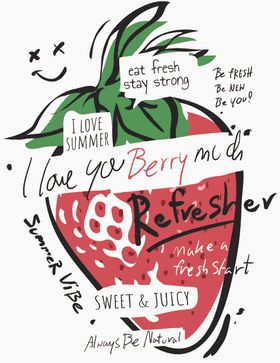 eat fresh
stay strong
Be FRESH
Be NEW
Be YOU!
I LOVE
SUMMER
I love you Berry much
Refresher
make a
fresh start
SUMMER ViBe
SWEET & JUICY
Always Be Natural